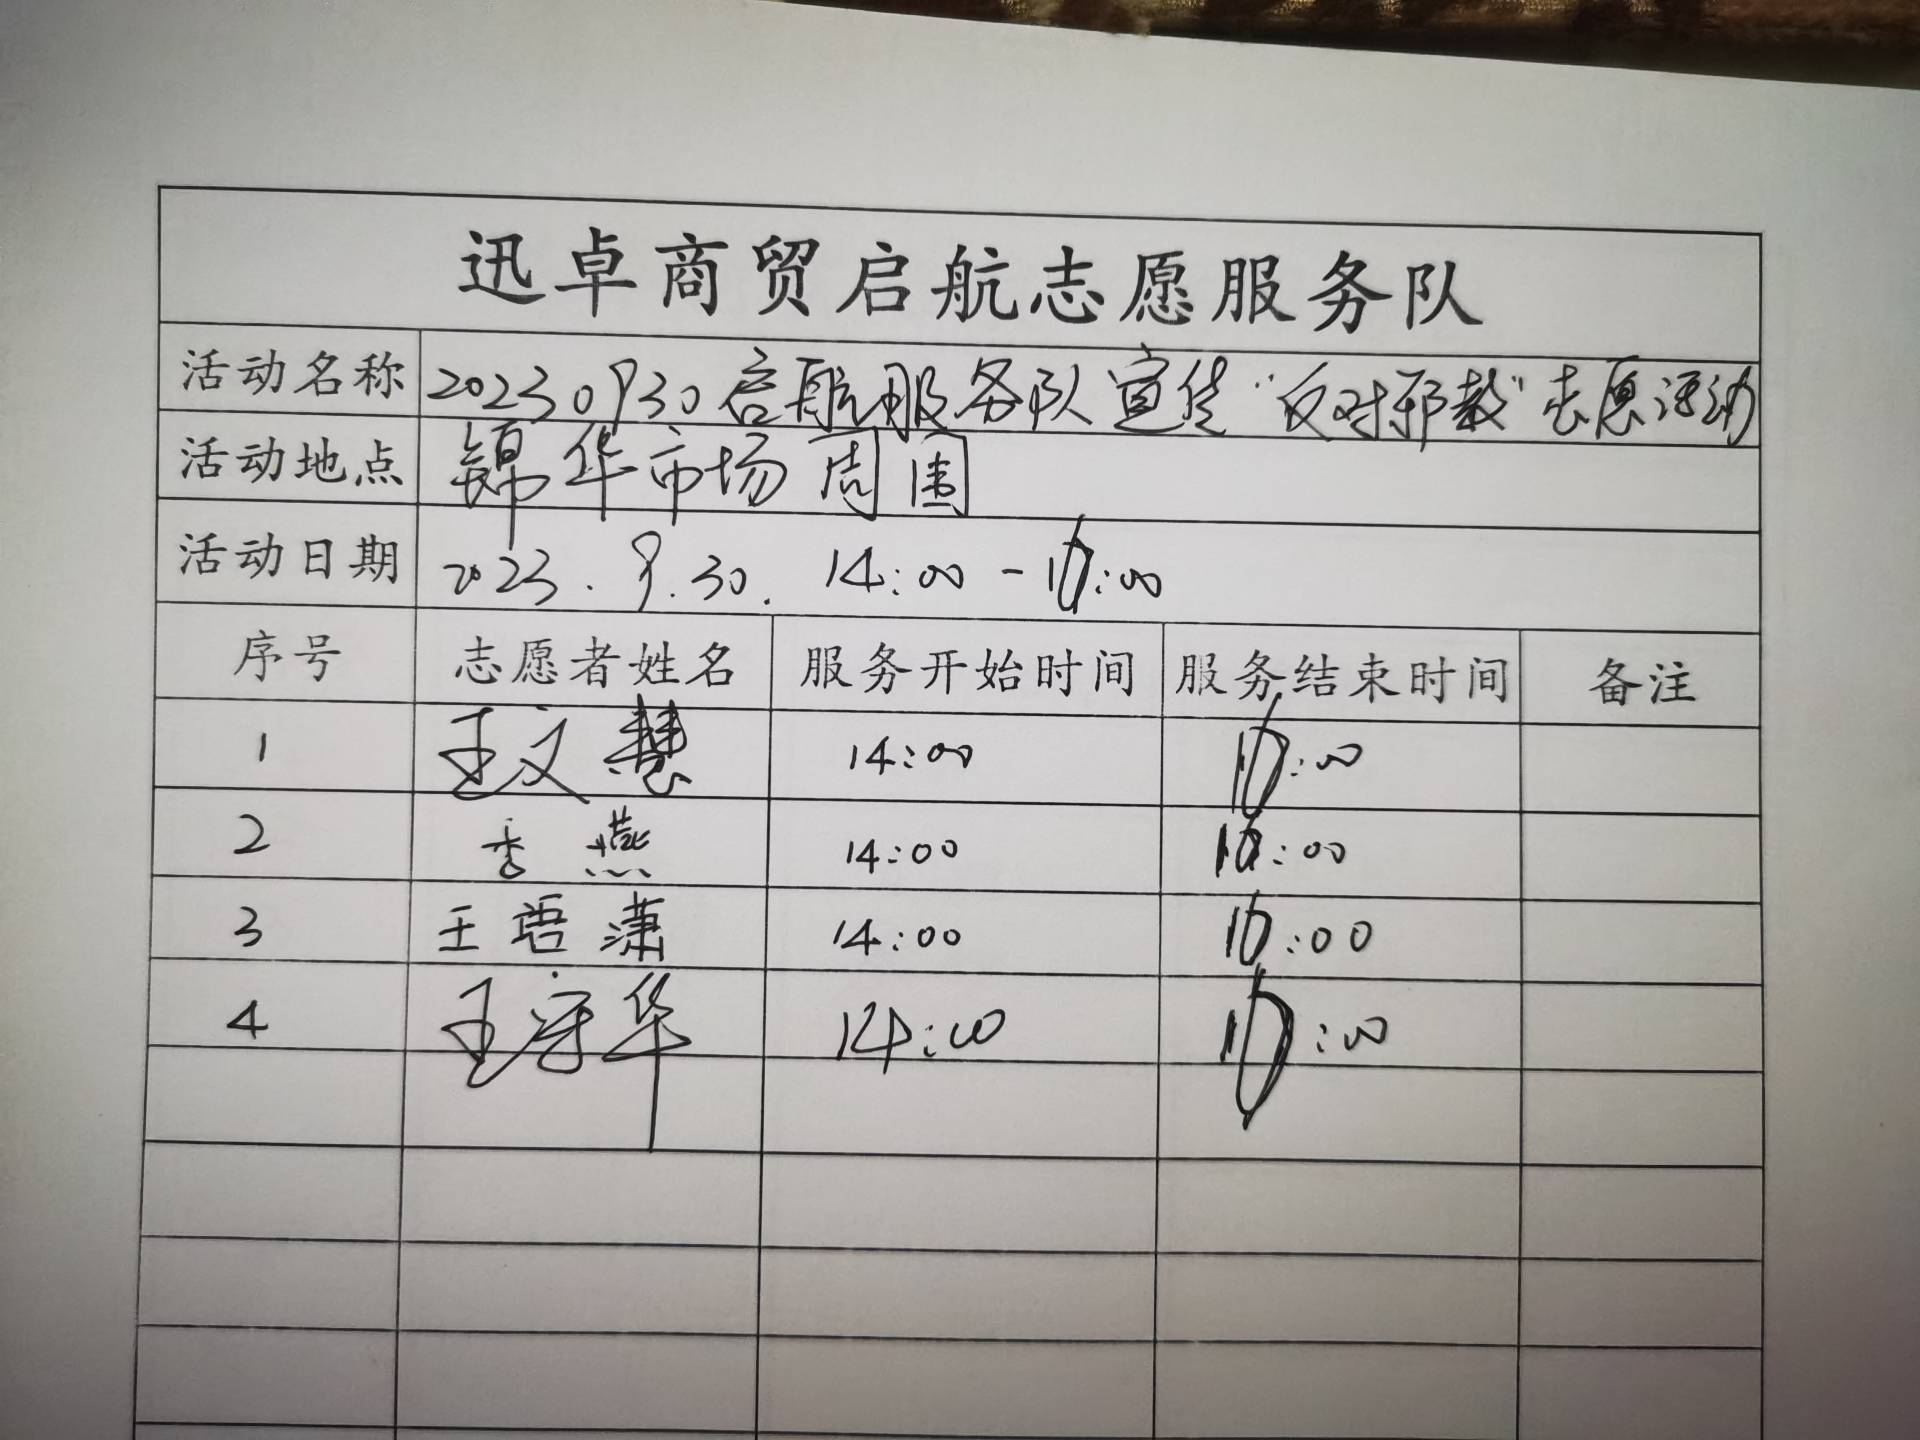 迅卓商贸启航志愿服务队
活动名称 20230930启航服务队宣传"反对邪教"志愿活动
活动地点 锦华市场周围
活动日期 2023.9.30. 14:00-16:00
序号 志愿者姓名 服务开始时间 服务结束时间 备注
1 王文慧 14:00 16:00
2 李燕 14:00 16:00
3 王语潇 14:00 16:00
4 王守华 14:00 16:00